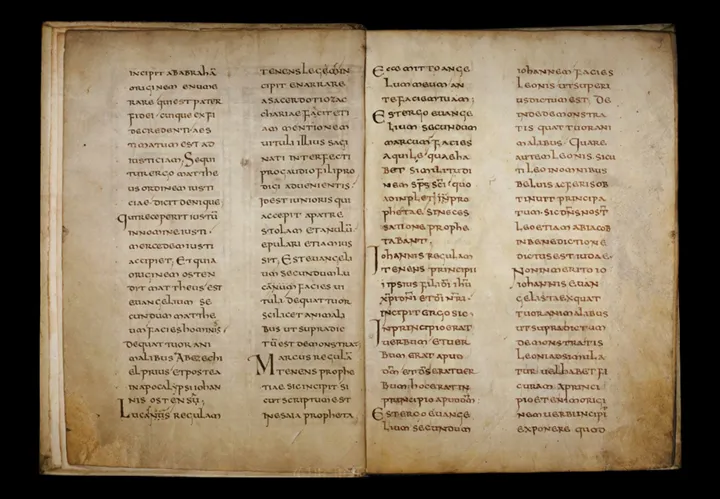 INCIPIT AB ABRAHĀ
ORIGINEM ENUME
RARE QUI EST PATER
FIDEI CUIQUE EX FI
DE CREDENTI AES
TIMATUM EST AD
IUSTICIAM; SEQUI
TUR ERGO MATTHE
US ORDINEM IUSTI
CIAE DICIT DENIQUE
QUI RECEPERIT IUSTŪ
IN NOMINE IUSTI
MERCEDEM IUSTI
ACCIPIET; ET QUIA
ORIGINEM OSTEN
DIT MATTHEUS EST
EUANGELIUM SE
CUNDUM MATTHE
UM FACIES HOMINIS
DE QUATTUOR ANI
MALIBUS AB EZECHI
EL PRIUS ET POSTEA
IN APOCALYPSI IOHAN
NIS OSTENSŪ;
LUCANUS REGULAM
TENENS LEGEM IN
CIPIT ENARRARE
A SACERDOTIO ZAC
CHARIAE FACIT ETI
AM MENTIONEM
UITULI ILLIUS SAGI
NATI INTERFECTI
PRO GAUDIO FILI PRO
DIGI ADUENIENTIS
ID EST IUNIORIS QUI
ACCEPIT A PATRE
STOLAM ET ANULŪ
EPULARI ETIAM IUS
SIT; EST EUANGELI
UM SECUNDUM LU
CANUM FACIES UI
TULI DE QUATTUOR
SCILICET ANIMALI
BUS UT SUPRA DIC
TŪ EST DEMONSTRAT;
MARCUS REGULĀ
TENENS PROPHE
TIAE SIC INCIPIT SI
CUT SCRIPTUM EST
IN ESAIA PROPHETA
ECCE MITTO ANGE
LUM MEUM AN
TE FACIEM TUAM;
EST ERGO EUANGE
LIUM SECUNDUM
MARCUM FACIES
AQUILE QUAE HA
BET SIMILITUDI
NEM SPS SCI QUO
ADIMPLETI IN PRO
PHETAE SINE CES
SATIONE PROPHE
TABANT;
IOHANNIS REGULAM
TENENS PRINCIPII
IPSIUS FILII DI IHU
XPI DNI ET DI NRI
INCIPIT ERGO SIC
IN PRINCIPIO ERAT
UERBUM ET UER
BUM ERAT APUD
DM ET DS ERAT UER
BUM HOC ERAT IN
PRINCIPIO APUD DM
EST ERGO EUANGE
LIUM SECUNDUM
IOHANNEM FACIES
LEONIS UT SUPERI
US DICTUM EST DE
INDE DEMONSTRA
TIS QUATTUOR ANI
MALIBUS QUARE
AUTEM LEONIS SICU
TI LEO IN OMNIBUS
BELUIS AC FERIS OB
TINUIT PRINCIPA
TUM SIC DNS NOST
LEO ETIAM AB IACOB
IN BENEDICTIONE
DICTUS EST IUDAE
NON IMMERITO IO
IOHANNIS EUAN
GELISTA EX QUAT
TUOR ANIMALIBUS
UT SUPRA DICTUM
DEMONSTRATIS
LEONI ADSIMILA
TUR UEL HABET FI
GURAM A PRINCI
PIO ETENIM ORIGI
NEM UERBI INCIPI
EXPONERE QUOD